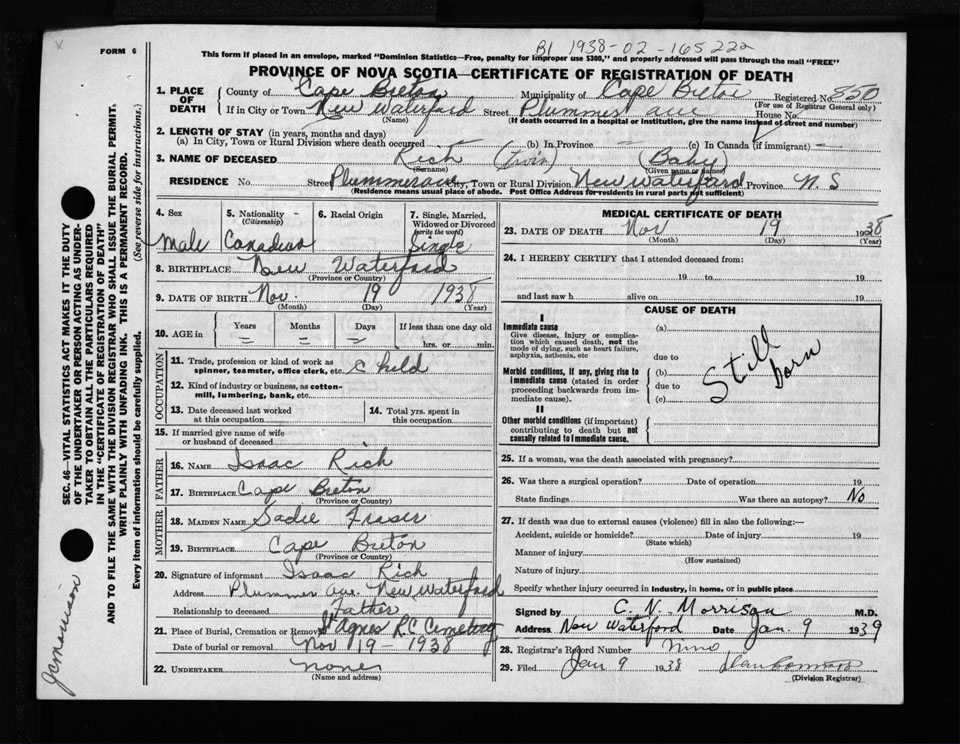 x
FORM 6
B1 1938-02-165222
This form if placed in an envelope, marked "Dominion Statistics—Free, penalty for improper use $300," and properly addressed will pass through the mail "FREE"
PROVINCE OF NOVA SCOTIA—CERTIFICATE OF REGISTRATION OF DEATH
1. PLACE OF DEATH
County of Cape Breton Municipality of Cape Breton Registered No. 850
(For use of Registrar General only)
If in City or Town New Waterford Street Plummer ave House No.
(Name) (If death occurred in a hospital or institution, give the name instead of street and number)
2. LENGTH OF STAY (in years, months and days)
(a) In City, Town or Rural Division where death occurred (b) In Province (c) In Canada (if immigrant)
3. NAME OF DECEASED Rich (twin) (Baby)
(Surname) (Given name or names)
RESIDENCE No. Street Plummer ave City, Town or Rural Division New Waterford Province N. S
(Residence means usual place of abode. Post Office Address for residents in rural parts not sufficient)
4. Sex
Male
5. Nationality
(Citizenship)
Canadian
6. Racial Origin
7. Single, Married, Widowed or Divorced
(write the word)
Single
8. BIRTHPLACE New Waterford
(Province or Country)
9. DATE OF BIRTH Nov. 19 1938
(Month) (Day) (Year)
10. AGE in Years Months Days If less than one day old
hrs. or min.
OCCUPATION
11. Trade, profession or kind of work as
spinner, teamster, office clerk, etc. child
12. Kind of industry or business, as cotton-
mill, lumbering, bank, etc.
13. Date deceased last worked
at this occupation
14. Total yrs. spent in
this occupation
15. If married give name of wife
or husband of deceased
FATHER
16. NAME Isaac Rich
17. BIRTHPLACE Cape Breton
(Province or Country)
MOTHER
18. MAIDEN NAME Sadie Fraser
19. BIRTHPLACE Cape Breton
(Province or Country)
20. Signature of informant Isaac Rich
Address Plummer ave. New Waterford
Relationship to deceased Father
21. Place of Burial, Cremation or Removal St Agnes R.C Cemetery
Date of burial or removal Nov 19-1938
22. UNDERTAKER none
(Name and address)
MEDICAL CERTIFICATE OF DEATH
23. DATE OF DEATH Nov 19 1938
(Month) (Day) (Year)
24. I HEREBY CERTIFY that I attended deceased from:
19 to 19
and last saw h alive on 19
CAUSE OF DEATH
I
Immediate cause
Give disease, injury or complication which caused death, not the mode of dying, such as heart failure, asphyxia, asthenia, etc
(a)
due to
Morbid conditions, if any, giving rise to immediate cause (stated in order proceeding backwards from immediate cause).
(b)
due to
(c)
Still born
II
Other morbid conditions (if important) contributing to death but not causally related to immediate cause.
25. If a woman, was the death associated with pregnancy?
26. Was there a surgical operation? Date of operation 19
State findings Was there an autopsy? No
27. If death was due to external causes (violence) fill in also the following:—
Accident, suicide or homicide? Date of injury 19
(State which)
Manner of injury
(How sustained)
Nature of injury
Specify whether injury occurred in industry, in home, or in public place
Signed by C. N. Morrison M.D.
Address New Waterford Date Jan. 9 1939
28. Registrar's Record Number
29. Filed Jan 9 1938
(Division Registrar)
SEC. 46—VITAL STATISTICS ACT MAKES IT THE DUTY
OF THE UNDERTAKER OR PERSON ACTING AS UNDER-
TAKER TO OBTAIN ALL THE PARTICULARS REQUIRED
IN THE "CERTIFICATE OF REGISTRATION OF DEATH"
AND TO FILE THE SAME WITH THE DIVISION REGISTRAR WHO SHALL ISSUE THE BURIAL PERMIT.
WRITE PLAINLY WITH UNFADING INK. THIS IS A PERMANENT RECORD.
Every item of information should be carefully supplied. (See reverse side for instructions.)